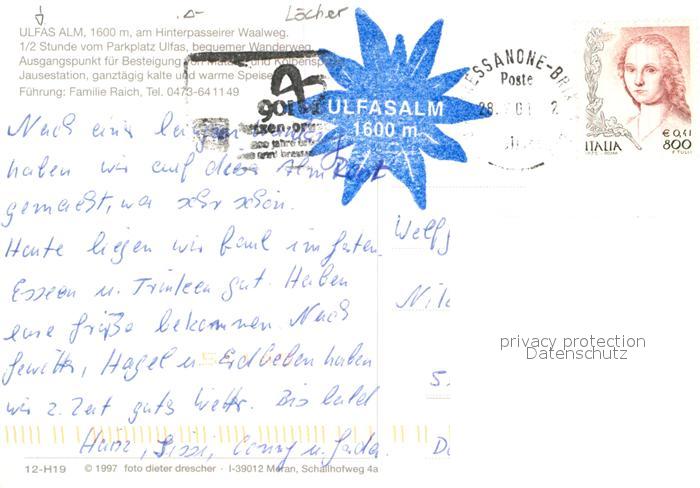 Löcher
ULFAS ALM, 1600 m, am Hinterpasseirer Waalweg.
1/2 Stunde vom Parkplatz Ulfas, bequemer Wanderweg.
Ausgangspunkt für Besteigung von Matatz- und Kolbenspitze
Jausestation, ganztägig kalte und warme Speisen
Führung: Familie Raich, Tel. 0473-641149
ULFASALM
1600 m.
ESSANONE-BRIX
Poste
28.
ITALIA
€ 0,41
800
Nach einer
haben wir auf dieser Alm Rast
gemacht, war sehr schön.
Heute liegen wir faul im Garten.
Essen u. Trinken gut. Haben
eure Grüße bekommen. Nach
Gewitter, Hagel u. Erdbeben haben
wir z. Zeit gutes Wetter. Bis bald
Hans, Sissi, Conny u.
Wolfg
Nik
5
D
privacy protection
Datenschutz
12-H19 © 1997 foto dieter drescher · I-39012 Meran, Schallhofweg 4a